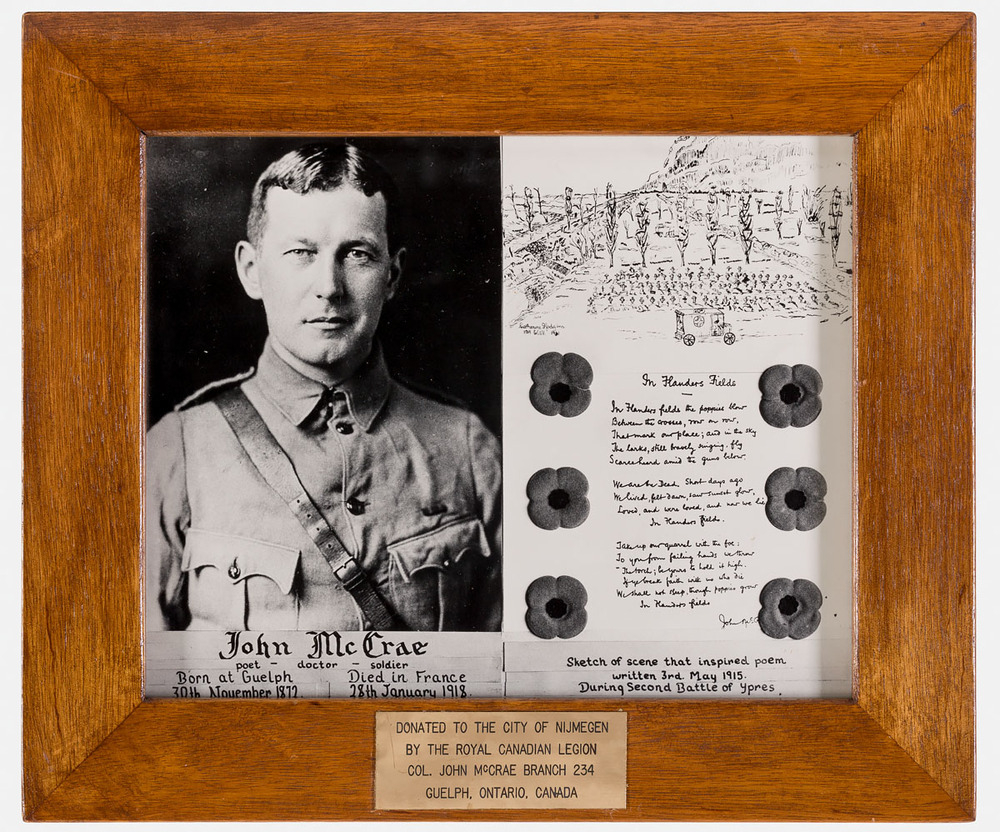 John McCrae
poet - doctor - soldier
Born at Guelph
30th November 1872
Died in France
28th January 1918
In Flanders Fields
In Flanders fields the poppies blow
Between the crosses, row on row,
That mark our place; and in the sky
The larks, still bravely singing, fly
Scarce heard amid the guns below.
We are the Dead. Short days ago
We lived, felt dawn, saw sunset glow,
Loved, and were loved, and now we lie
In Flanders fields.
Take up our quarrel with the foe:
To you from failing hands we throw
The torch; be yours to hold it high.
If ye break faith with us who die
We shall not sleep, though poppies grow
In Flanders fields
John
Sketch of scene that inspired poem
written 3rd. May 1915.
During Second Battle of Ypres.
DONATED TO THE CITY OF NIJMEGEN
BY THE ROYAL CANADIAN LEGION
COL. JOHN McCRAE BRANCH 234
GUELPH, ONTARIO, CANADA